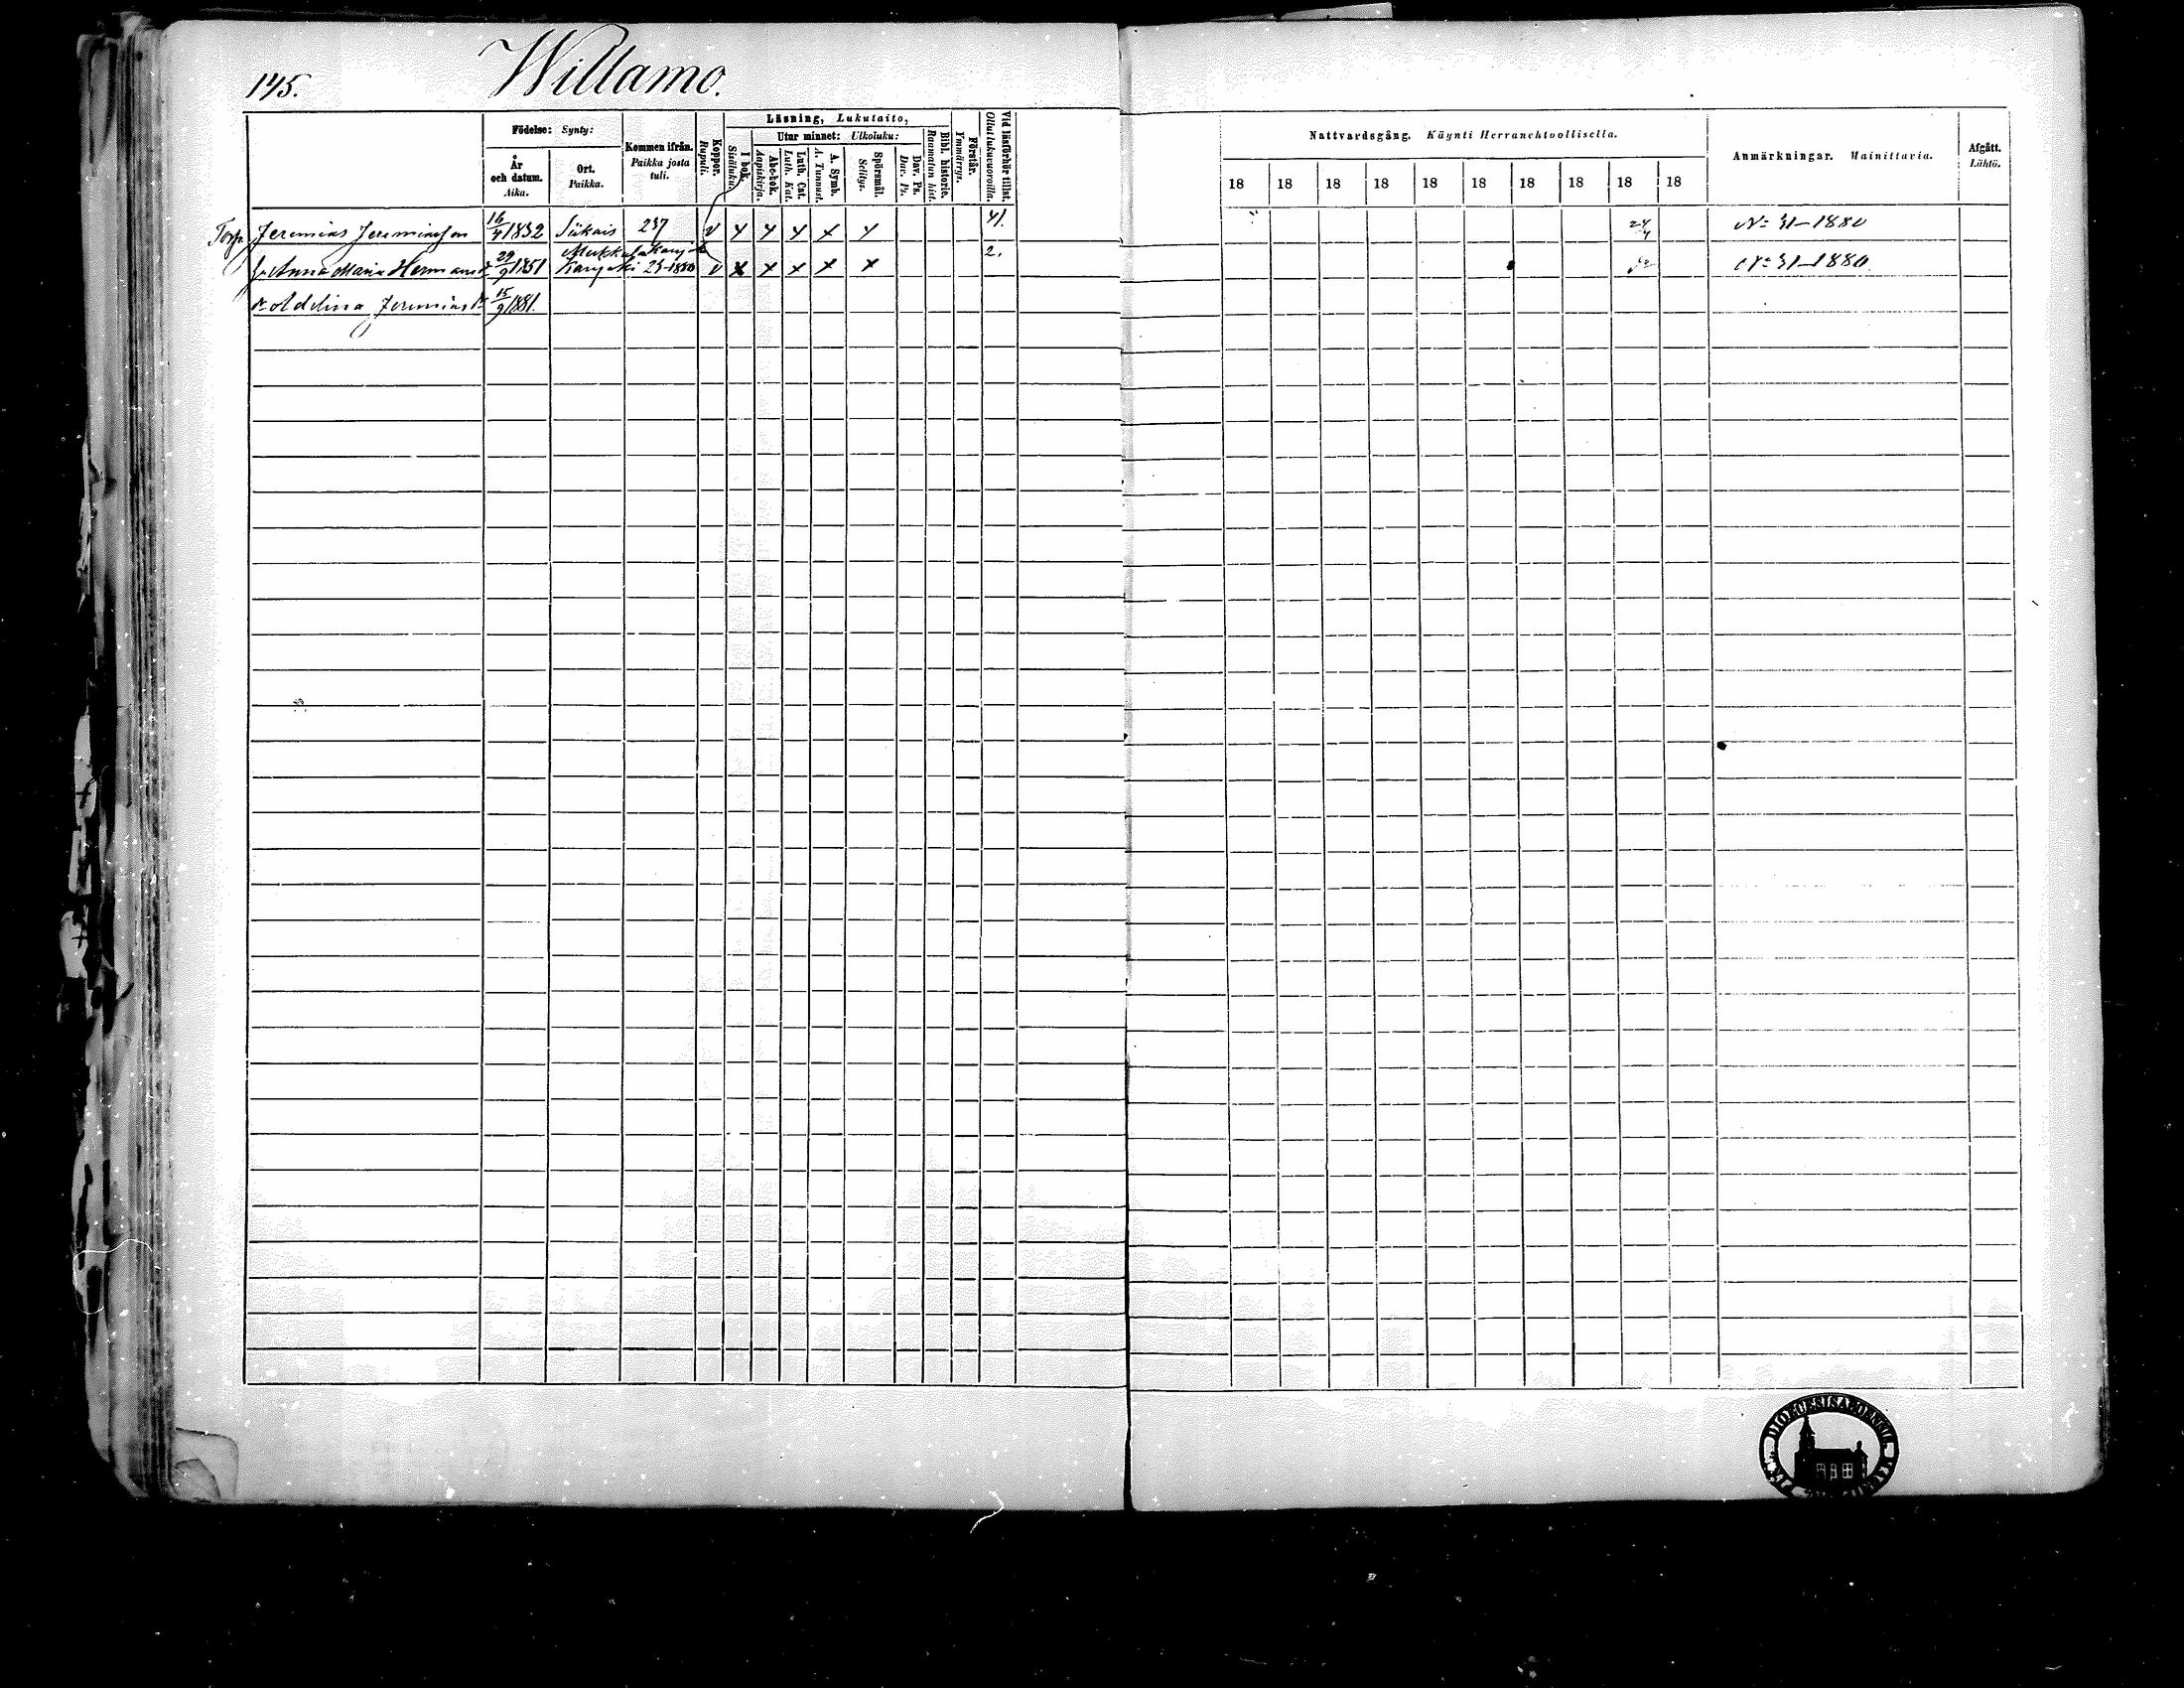 145.
Willamo.
Födelse: Synty:
År och datum. Aika.
Ort. Paikka.
Kommen ifrån. Paikka josta tuli.
Koppor. Rupuli.
Läsning, Lukutaito,
I bok. Sisäluku.
Utur minnet: Ulkoluku:
Abc-bok. Aapiskirja.
Luth. Cat. Luth. Kat.
A. Symb. A. Tunnust.
Spörsmål. Selitys.
Dav. Ps. Dav. Ps.
Bibl. historie. Raamatun hist.
Förstår. Ymmärrys.
Vid läsförhör tillst. Ollut lukuvuoroilla.
Nattvardsgång. Käynti Herranehtoollisella.
18 18 18 18 18 18 18 18 18 18
Anmärkningar. Mainittavia.
Afgått. Lähtö.
Torp. Jeremias Jeremiasson 16/4 1832 Siikais 237 v 41. 24/4 No 31–1880
h. Anna Maria Hermansdr 29/9 1851 25–1880 v x x x x x 2. No 31–1880.
dr Adelina Jeremiasdr 15/9 1881.